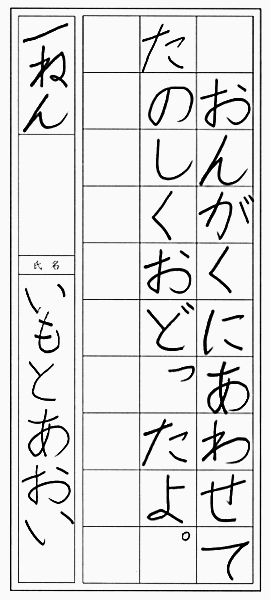 おんがくにあわせて
たのしくおどったよ。
一ねん
氏名
いもとあおい